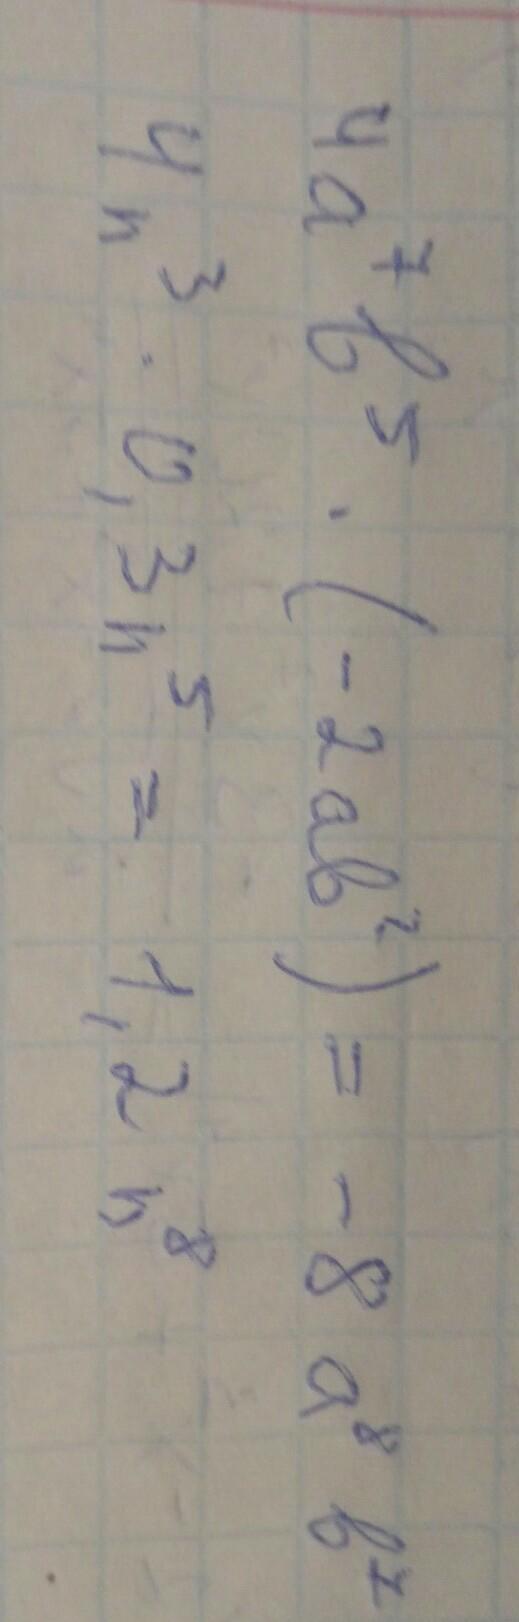 4a⁷b⁵ · (-2ab²) = -8a⁸b⁷
4n³ · 0,3n⁵ = 1,2n⁸